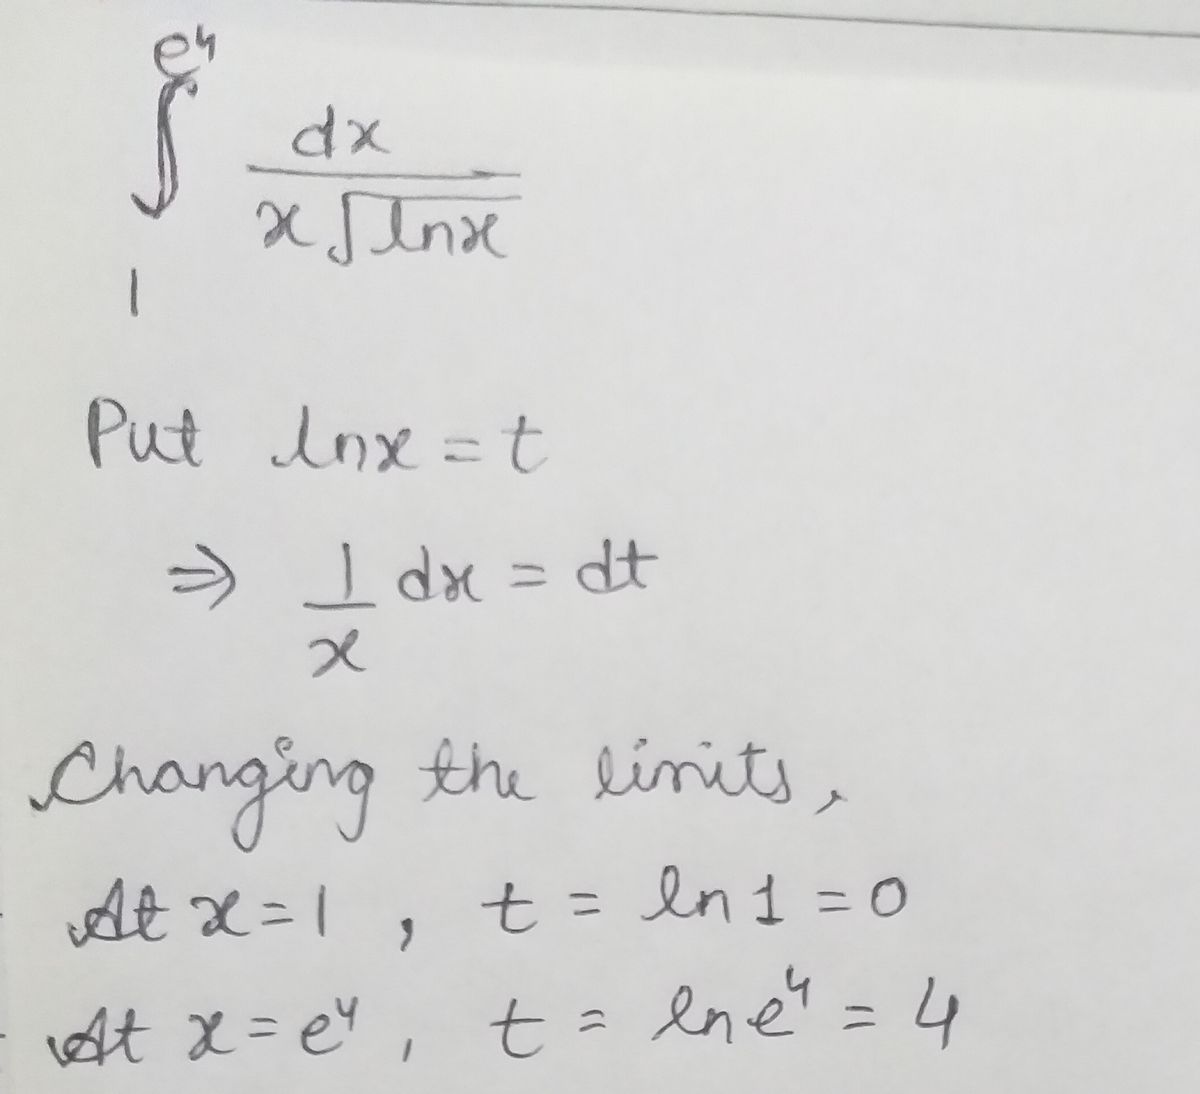 ∫₁^e⁴ dx / x√lnx
Put lnx = t
⇒ 1/x dx = dt
Changing the limits,
At x = 1 , t = ln 1 = 0
At x = e⁴ , t = ln e⁴ = 4